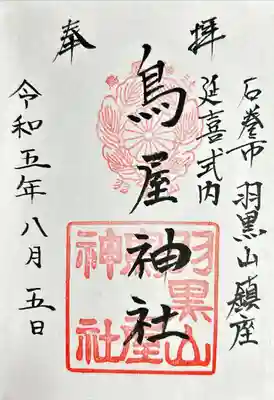 石巻市 羽黒山鎮座
延喜式内
奉 拝
鳥屋神社
令和五年八月五日
羽黒山
鳥屋
神社